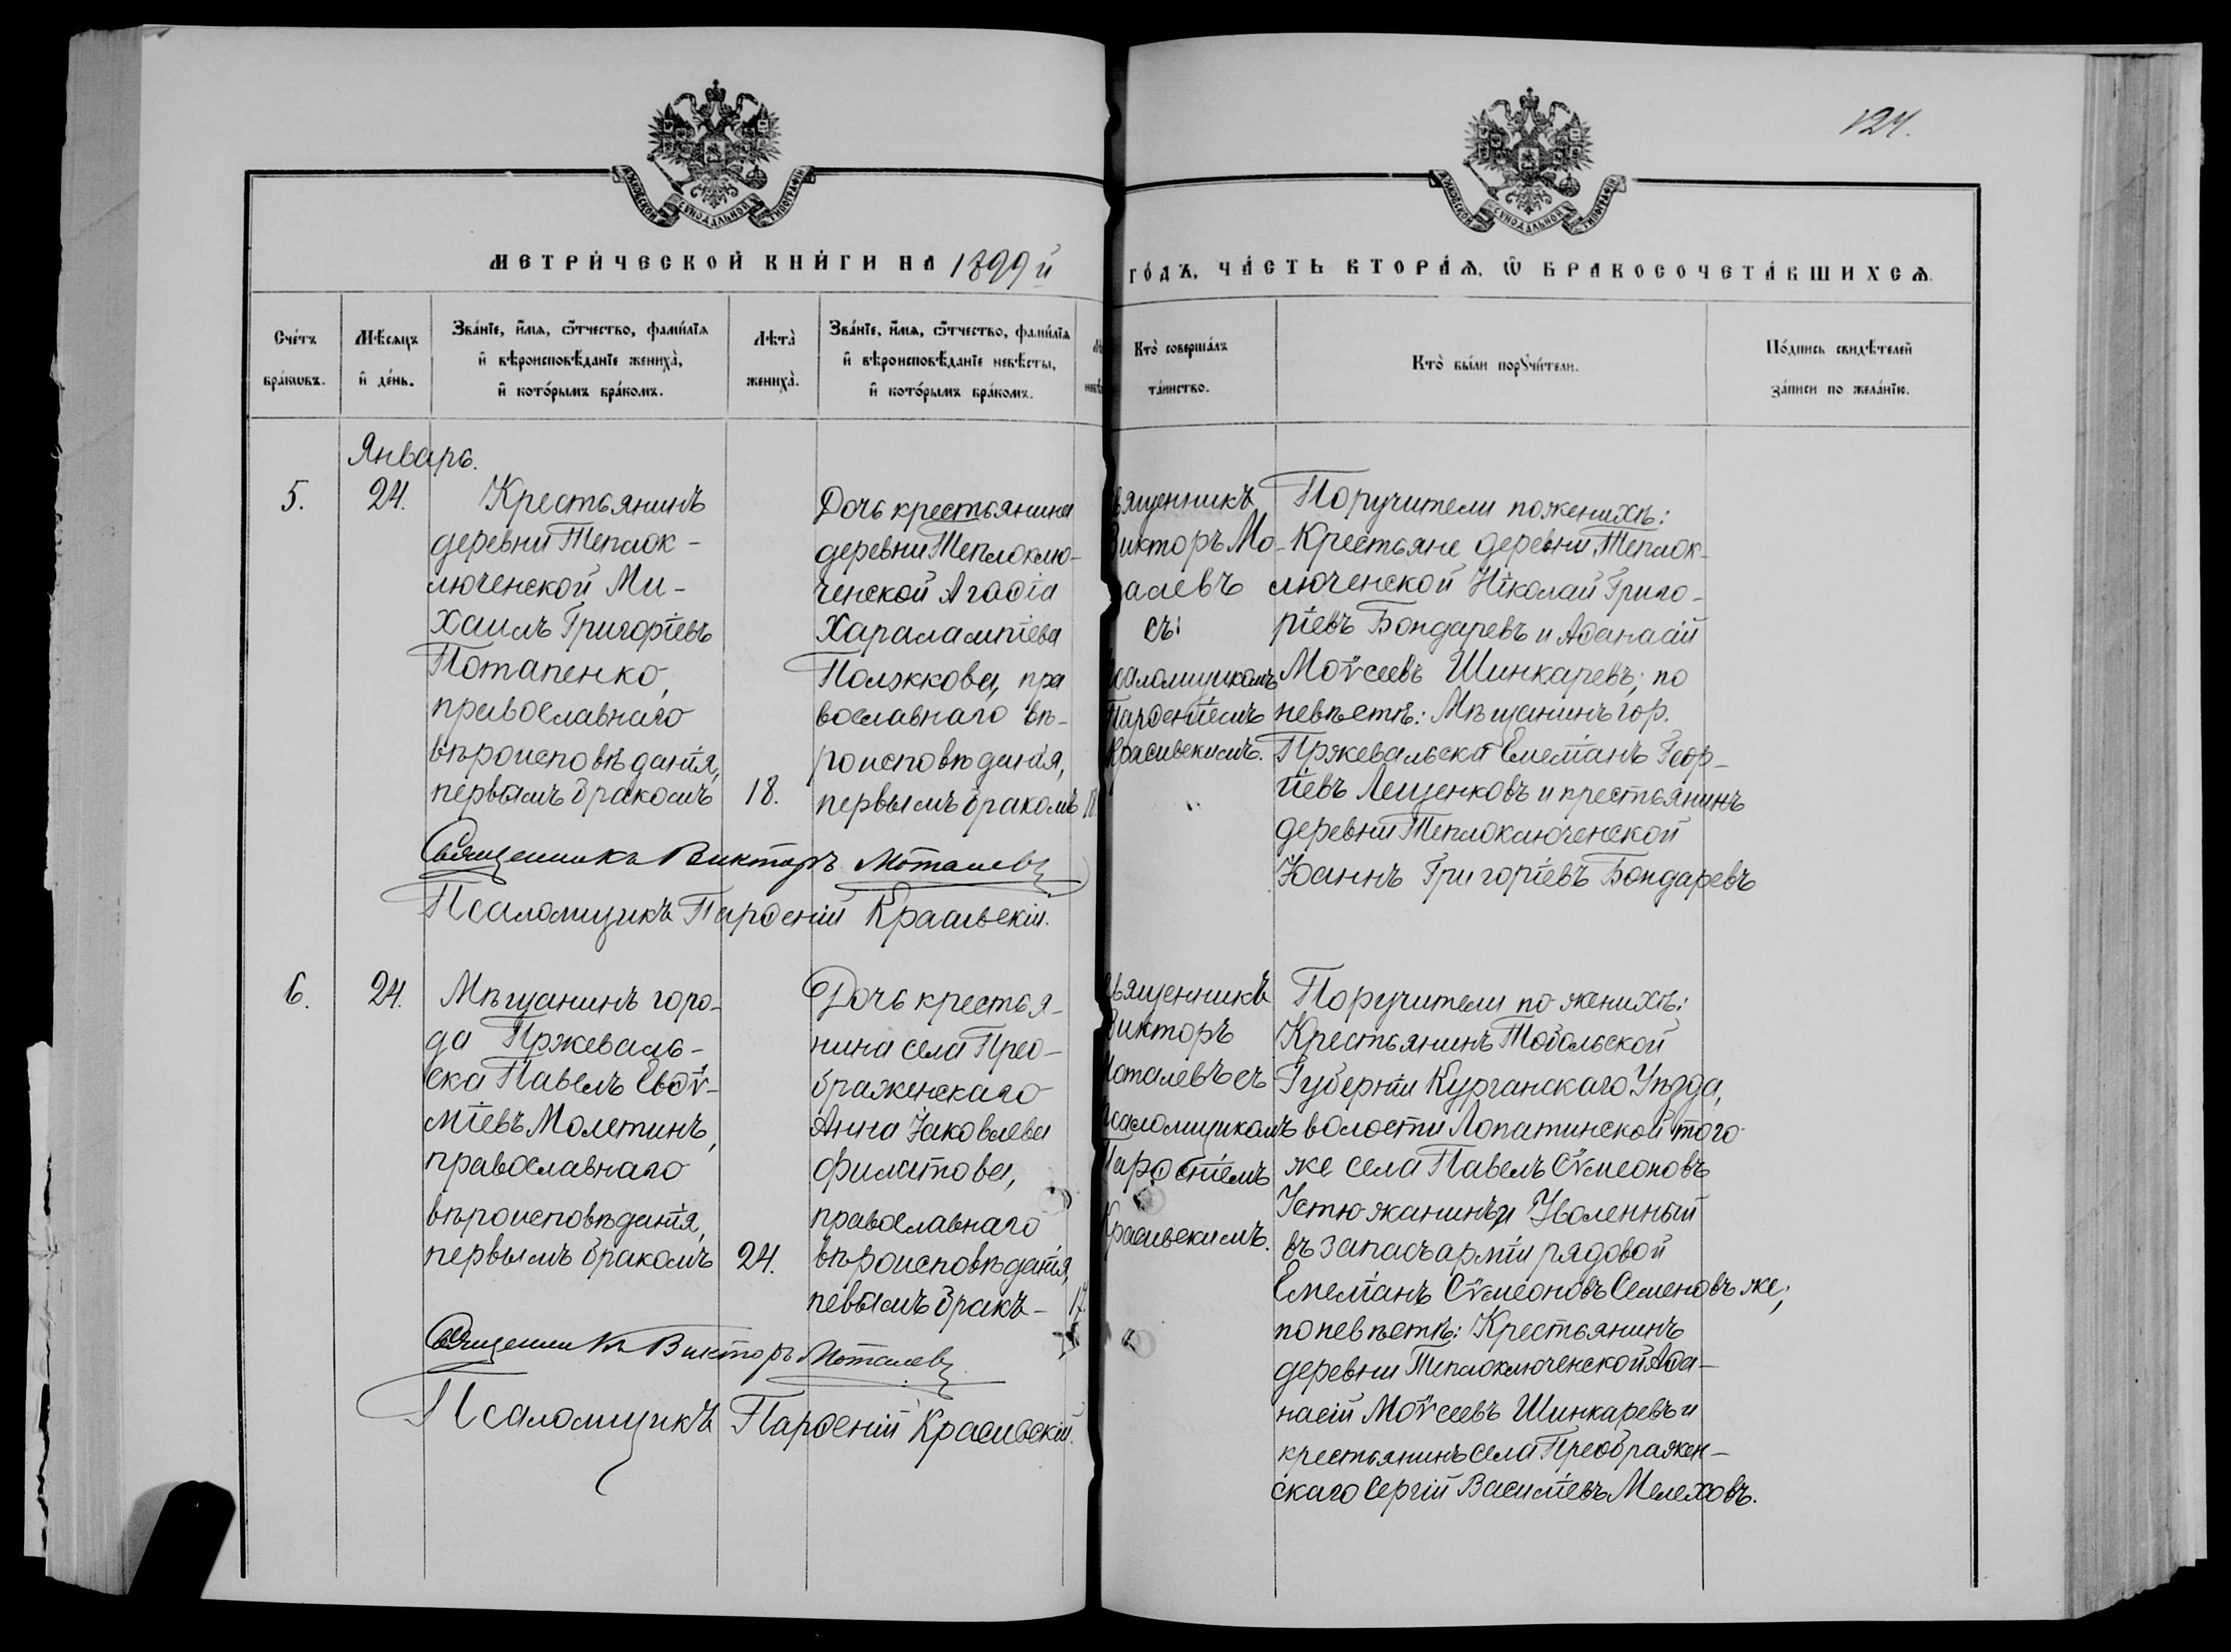 124.
МОСКОВСКОЙ СѴНОДАЛЬНОЙ ТИПОГРАФІИ
МОСКОВСКОЙ СѴНОДАЛЬНОЙ ТИПОГРАФІИ
МЕТРИ́ЧЕСКОЙ КНИ́ГИ НА 1899 й
ГО́ДЪ, ЧА́СТЬ ВТОРА́Ѧ, Ѡ҆ БРАКОСОЧЕТА́ВШИХСѦ.
Сче́тъ
бра́кѡвъ.
Мѣ́сѧцъ
и҆ де́нь.
Зва́нїе, и҆́мѧ, ѻ҆́тчество, фами́лїѧ
и҆ вѣроисповѣ́данїе жениха̀,
и҆ кото́рымъ бра́комъ.
Лѣта̀
жениха̀.
Зва́нїе, и҆́мѧ, ѻ҆́тчество, фами́лїѧ
и҆ вѣроисповѣ́данїе невѣ́сты,
и҆ кото́рымъ бра́комъ.
Кто̀ соверша́лъ
та́инство.
Кто̀ бы́ли порꙋчи́тели.
По́дпись свидѣ́телей
за́писи по жела́нїю.
Январь.
5.
24.
Крестьянинъ
деревни Теплок-
люченской Ми-
хаилъ Григоріевъ
Потапенко,
православнаго
вѣроисповѣданія,
первымъ бракомъ
18.
Дочь крестьянина
деревни Теплоклю-
ченской Агаѳія
Харалампіева
Полякова, пра
вославнаго вѣ-
роисповѣданія,
первымъ бракомъ
18.
вященникъ
Викторъ Мо-
талевъ
съ:
саломщикомъ
Парѳеніемъ
Красивскимъ.
Поручители по женихѣ:
Крестьяне деревни Теплок-
люченской Николай Григо-
ріевъ Бондаревъ и Аѳанасій
Моѵсеевъ Шинкаревъ; по
невѣстѣ: Мѣщанинъ гор.
Пржевальска Емеліанъ Геор-
гіевъ Лещенковъ и крестьянинъ
деревни Теплоключенской
Іоаннъ Григоріевъ Бондаревъ
Священникъ Викторъ Моталевъ
Псаломщикъ Парѳеній Красивскій.
6.
24.
Мѣщанинъ горо-
да Пржеваль-
ска Павелъ Евѳѵ-
міевъ Молетинъ,
православнаго
вѣроисповѣданія,
первымъ бракомъ
24.
Дочь крестья-
нина села Прео-
браженскаго
Анна Іаковлева
Филатова,
православнаго
вѣроисповѣданія,
певымъ бракъ-
17.
вященникъ
Викторъ
Моталевъ съ
псаломщикомъ
Парѳеніемъ
Красивскимъ.
Поручители по женихѣ:
Крестьянинъ Тобольской
Губерніи Курганскаго Уѣзда,
волости Лопатинской того
же села Павелъ Сѵмеоновъ
Устюжанинъ и Уволенный
въ запасъ арміи рядовой
Емеліанъ Сѵмеоновъ Семеновъ же;
по невѣстѣ: Крестьянинъ
деревни Теплоключенской Аѳа-
насій Моѵсеевъ Шинкаревъ и
крестьянинъ села Преображен-
скаго Сергій Василіевъ Мелеховъ.
Священникъ Викторъ Моталевъ
Псаломщикъ Парѳеній Красивскій.